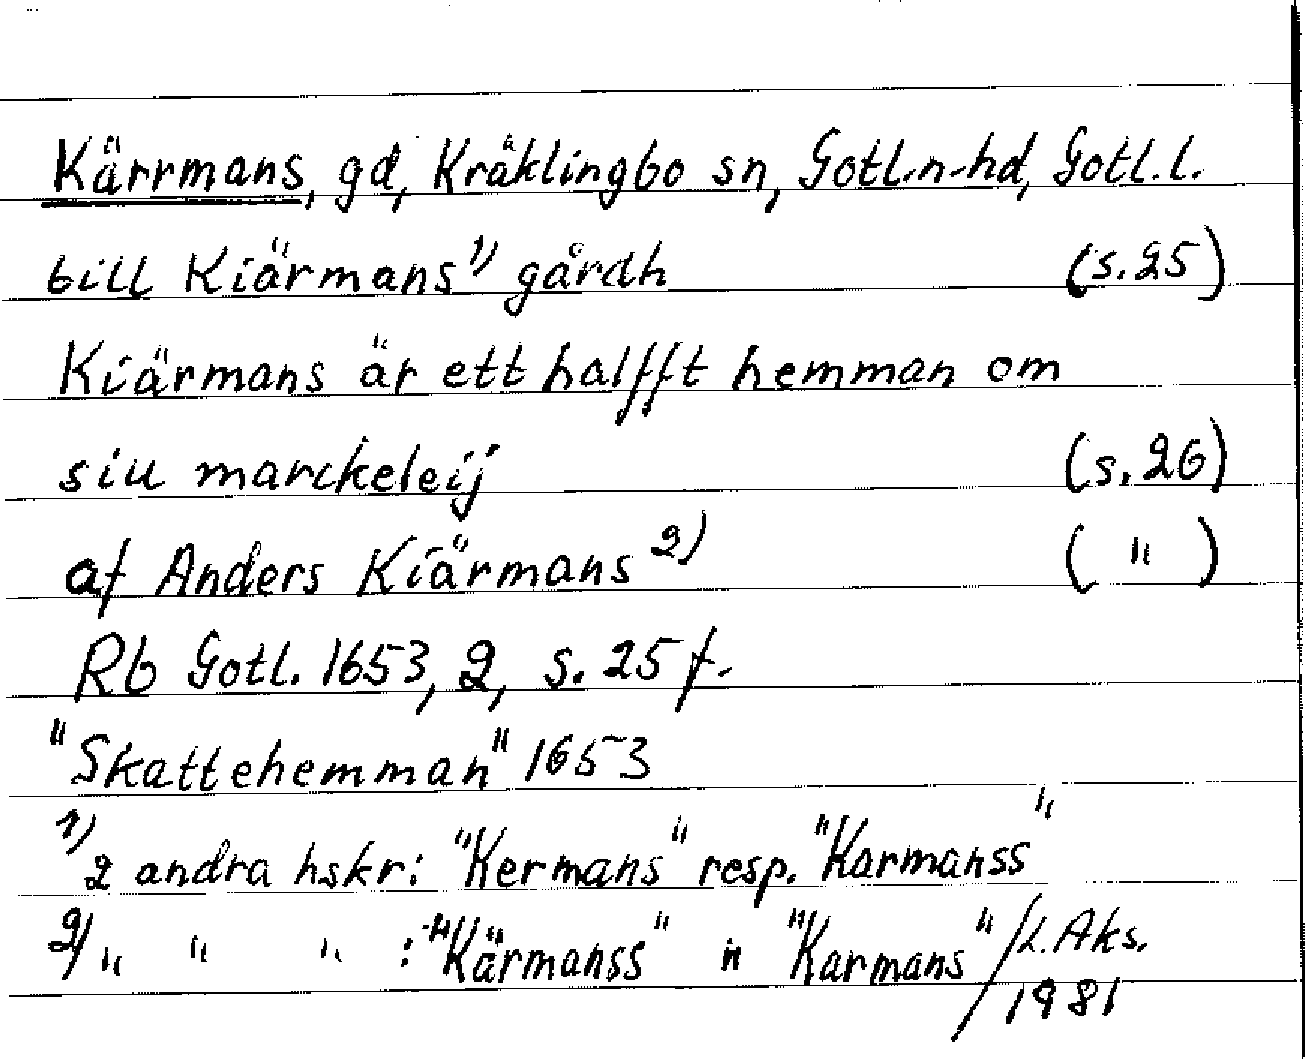 Kärrmans, gd, Kräklingbo sn, Gotl.n.hd, Gotl.l.
till Kiärmans 1) gårdh (s.25)
Kiärmans är ett halfft hemman om
siu marckeleij (s.26)
af Anders Kiärmans 2) ( " )
Rb Gotl. 1653, 2, s. 25 f.
"Skattehemman" 1653
1) 2 andra hskr: "Kermans" resp. "Karmanss"
2) " " " : "Kärmanss" " "Karmans" / L. Aks.
1981